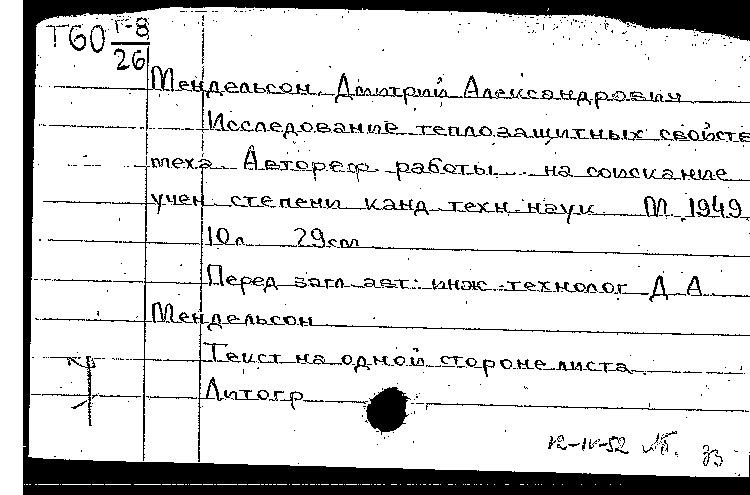 Т60 Г-8/26
Мендельсон, Дмитрий Александрович
Исследование теплозащитных свойств
меха. Автореф работы на соискание
учен степени канд техн. наук М 1949
10л 29см
Перед загл авт: инж-технолог Д А
Мендельсон
Текст на одной стороне листа
Литогр
12-IV-52